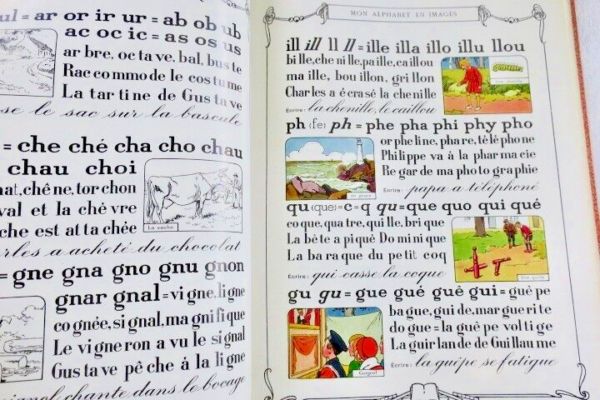 ul = ar or ir ur = ab ob ub
ac oc ic = as os us
ar bre, oc ta ve, bal, bus te
Rac com mo de le cos tu me
La tar ti ne de Gus ta ve
se le sac sur la bascule
= che ché cha cho chau
chau choi
hat, chê ne, tor chon
val et la chè vre
che est at ta chée
La vache
rles a acheté du chocolat
= gne gna gno gnu gnon
gnar gnal = vi gne, li gne
co gnée, si gnal, ma gni fi que
Le vi gne ron a vu le si gnal
Gus ta ve pê che à la li gne
ignol chante dans le bocage
MON ALPHABET EN IMAGES
ill ill ll ll = ille illa illo illu llou
bi lle, che ni lle, pa ille, ca illou
ma ille, bou illon, gri llon
Char les a é cra sé la che ni lle
Ecrire : la chenille, le caillou
ph (fe) ph = phe pha phi phy pho
or phe line, pha re, té lé pho ne
Phi lippe va à la phar ma cie
Re gar de ma pho to gra phie
Ecrire : papa a téléphoné
qu (que) = c = q qu = que quo qui qué
co que, qua tre, qui lle, bri que
La bê te a pi qué Do mi ni que
La ba ra que du pe tit coq
Ecrire : qui casse la coque
gu gu = gue gué guè gui = guê pe
ba gue, gui de, mar gue ri te
do gue = la guê pe vol ti ge
La guir lan de de Gui llau me
Guignol
Ecrire : la guêpe se fatigue